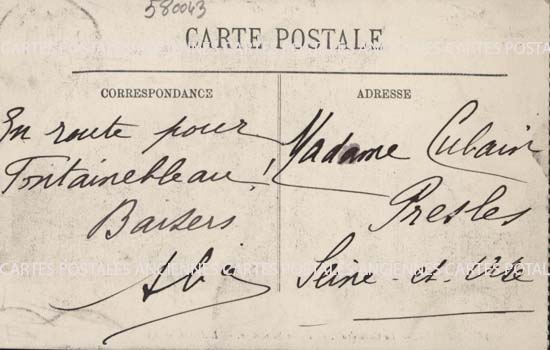 580043
CARTE POSTALE
CORRESPONDANCE
En route pour
Fontainebleau !
Baisers
ADRESSE
Madame Cubain
Presles
Seine-et-Oise
CARTES POSTALES ANCIENNES CARTES POSTALES ANCIENNES CARTES POSTALES